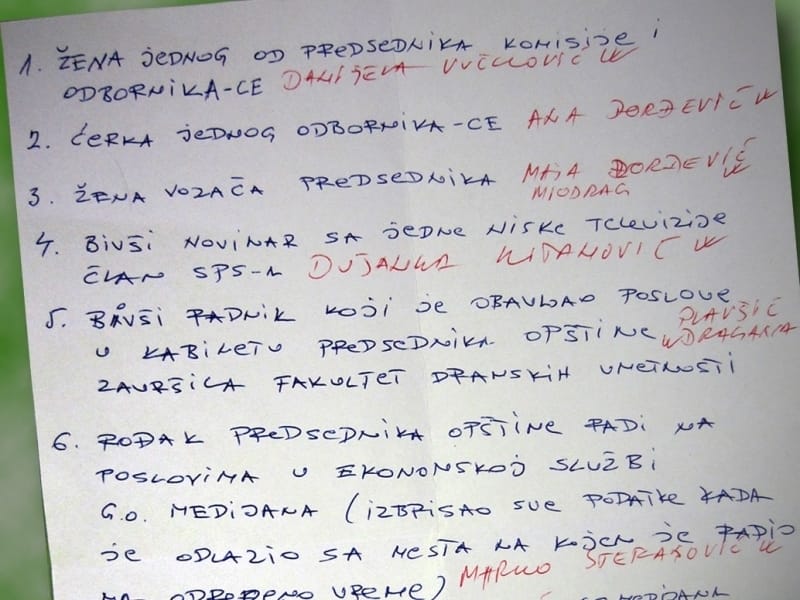 1. ŽENA JEDNOG OD PREDSEDNIKA KOMISIJE I
ODBORNIKA-CE DANIJELA VUČKOVIĆ
2. ĆERKA JEDNOG ODBORNIKA-CE ANA ĐORĐEVIĆ
3. ŽENA VOZAČA PREDSEDNIKA MAJA ĐORĐEVIĆ
MIODRAG
4. BIVŠI NOVINAR SA JEDNE NIŠKE TELEVIZIJE
ČLAN SPS-A DUŠANKA
5. BIVŠI RADNIK KOJI JE OBAVLJAO POSLOVE
U KABINETU PREDSEDNIKA OPŠTINE PLAVŠIĆ
DRAGANA
ZAVRŠILA FAKULTET DRAMSKIH UMETNOSTI
6. ROĐAK PREDSEDNIKA OPŠTINE RADI NA
POSLOVIMA U EKONOMSKOJ SLUŽBI
G.O. MEDIJANA (IZBRISAO SVE PODATKE KADA
JE ODLAZIO SA MESTA NA KOJEM JE RADIO
NA ODREĐENO VREME) MARKO